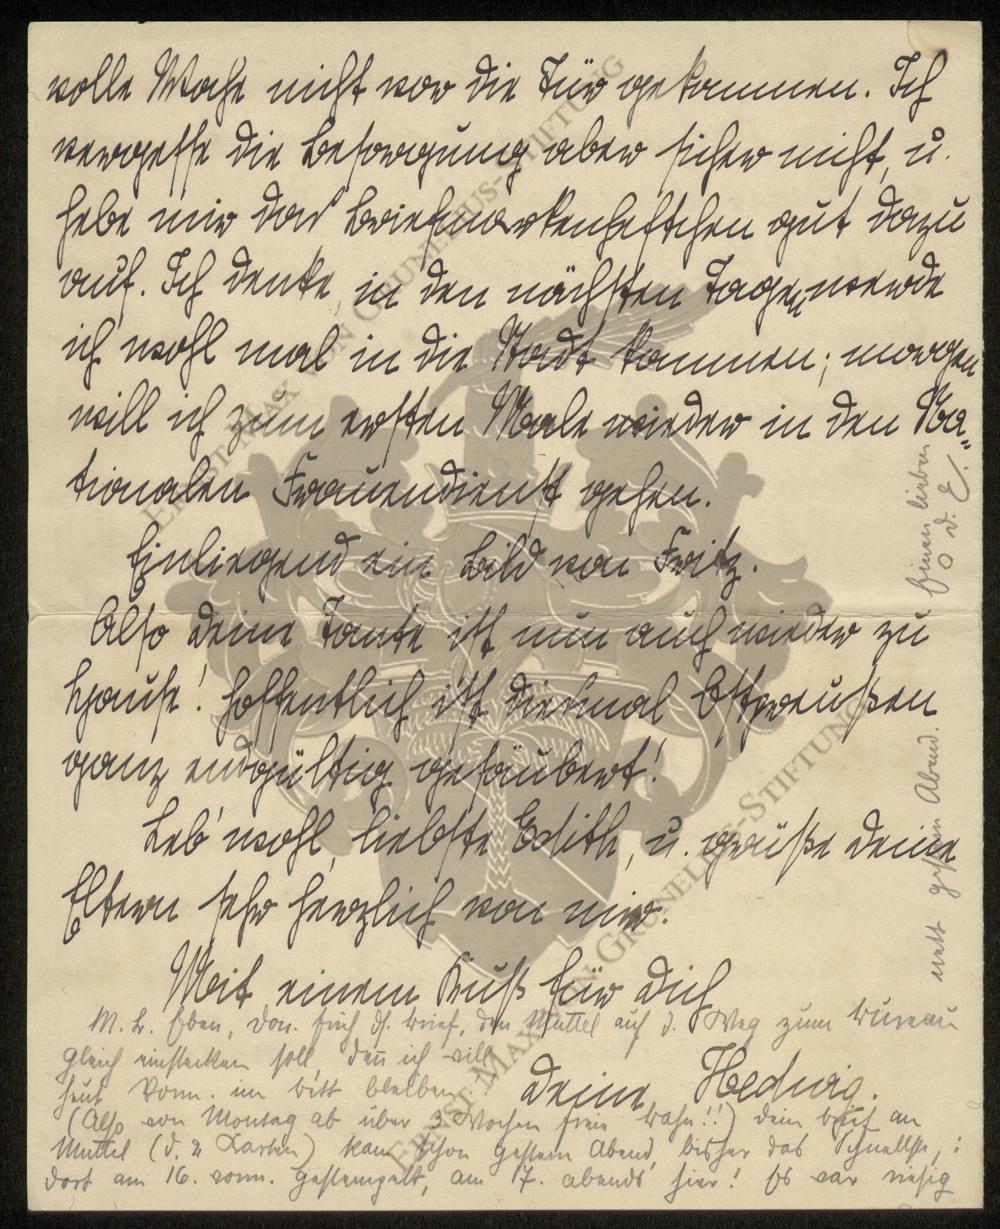 volle Woche nicht vor die Tür gekommen. Ich
vergesse die Besorgung aber sicher nicht, u.
hebe mir das Briefmarkenheftchen gut dazu
auf. Ich denke, in den nächsten Tagen werde
ich wohl mal in die Stadt kommen; morgen
will ich zum ersten Male wieder in den Na-
tionalen Frauendienst gehen.
Einliegend ein Bild von Fritz.
Also deine Tante ist nun auch wieder zu
Hause! Hoffentlich ist diesmal Ostpreußen
ganz endgültig gesäubert!
Leb' wohl, liebste Edith, u. grüße deine
Eltern sehr herzlich von mir.
Mit einem Kuß für dich
deine Hedwig.
M. L. Eben, Don. früh ds. Brief, den Muttel auf d. Weg zum Bureau
gleich einstecken soll, denn ich will
heut Vorm. im Bett bleiben
(Also von Montag ab über 3 Wochen freie Bahn!!) Dein Brief an
Muttel (d. 2 Karten) kam schon gestern Abend, bisher das Schnellste,:
dort am 16. vorm. gestempelt, am 17. abends hier! Es war riesig
nett gestern Abend. Einen lieben
d. E.
ERNST MAX VON GRUNELIUS-STIFTUNG
ERNST MAX VON GRUNELIUS-STIFTUNG